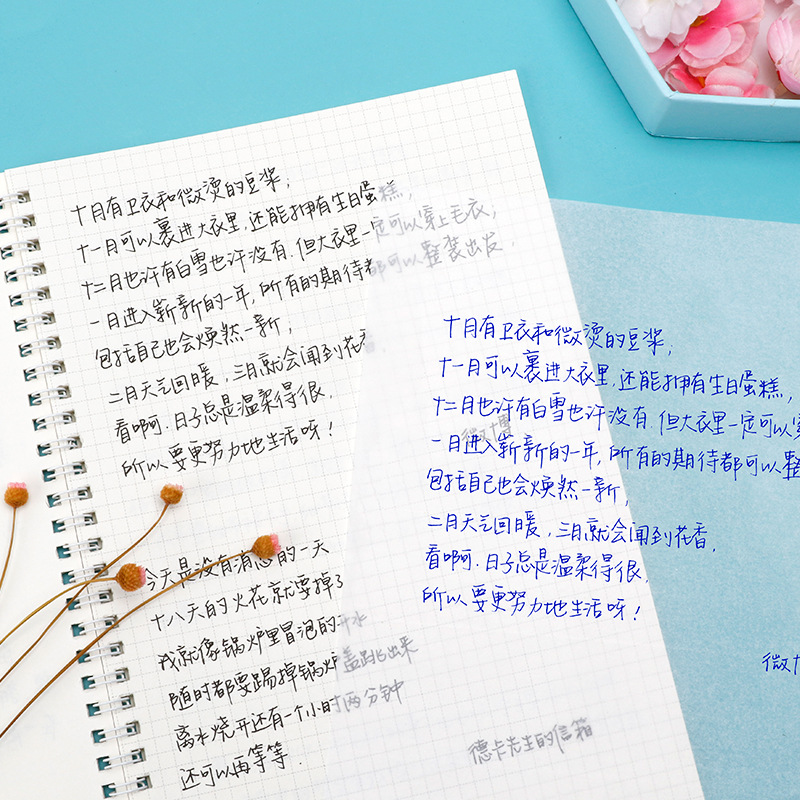 十月有卫衣和微烫的豆浆，
十一月可以裹进大衣里，还能拥有生日蛋糕，
十二月也许有白雪也许没有，但大衣里一定可以穿上毛衣，
一月进入崭新的一年，所有的期待都可以整装出发，
包括自己也会焕然一新，
二月天气回暖，三月就会闻到花香
看啊啊，日子总是温柔得很，
所以要更努力地生活呀！
微博
今天是没有消息的一天
十八天的火花就要掉了
我就像锅炉里冒泡的开水
随时都要踢掉锅炉盖跳出来
离水烧开还有一个小时两分钟
还可以再等等．
德卡先生的信箱
十月有卫衣和微烫的豆浆，
十一月可以裹进大衣里，还能拥有生日蛋糕，
十二月也许有白雪也许没有，但大衣里一定可以穿
一月进入崭新的一年，所有的期待都可以整
包括自己也会焕然一新，
二月天气回暖，三月就会闻到花香，
看啊啊，日子总是温柔得很，
所以要更努力地生活呀！
微